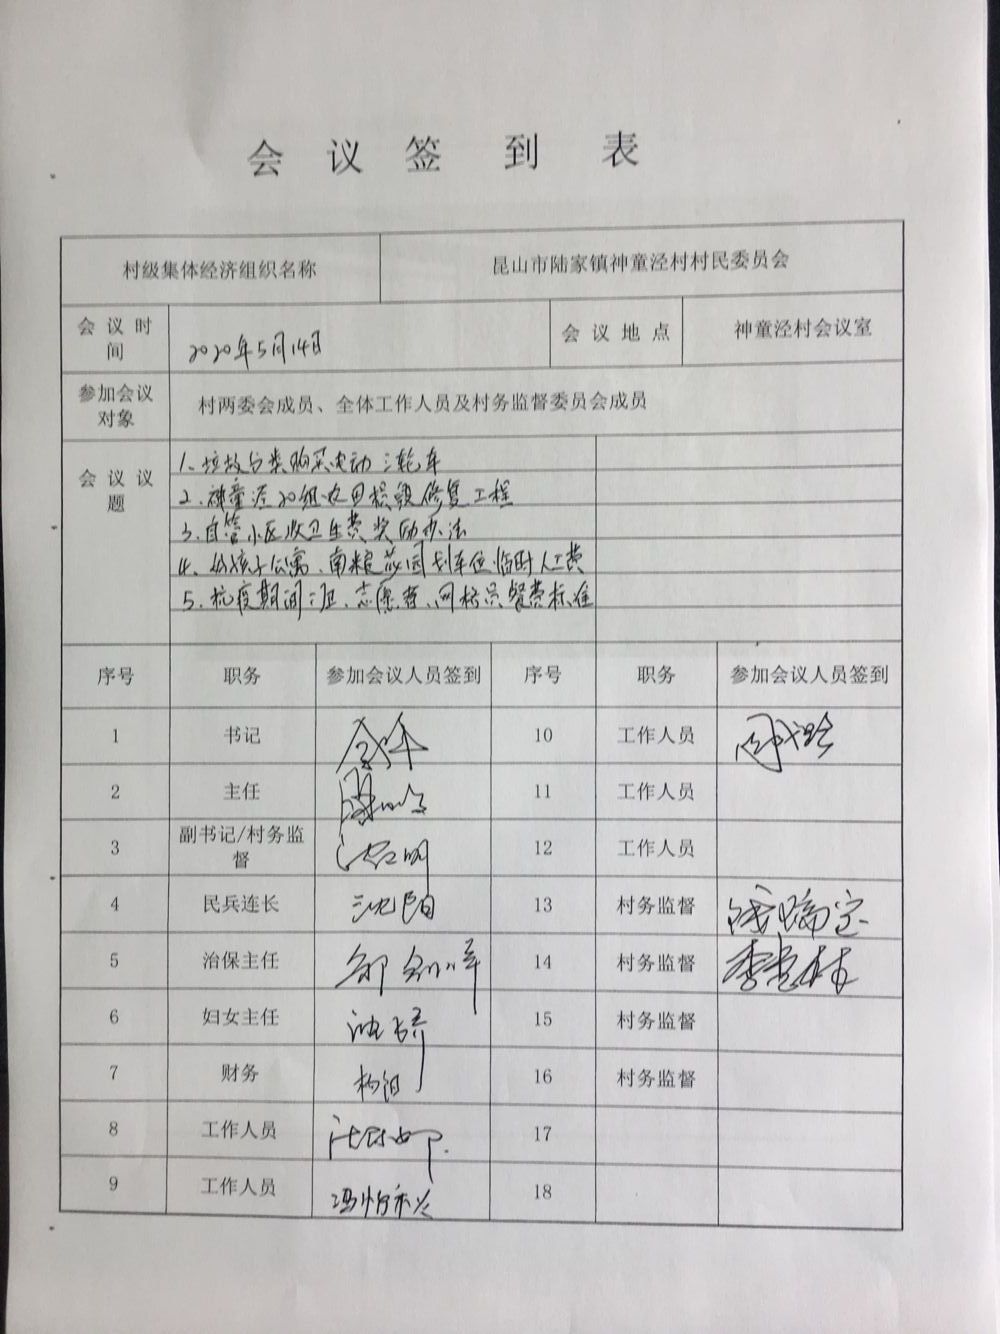 会议签到表
村级集体经济组织名称 昆山市陆家镇神童泾村村民委员会
会议时间 2020年5月14日 会议地点 神童泾村会议室
参加会议对象 村两委会成员、全体工作人员及村务监督委员会成员
会议议题
1、垃圾分类购买电动三轮车
2、神童泾20组农田 修复工程
3、自管小区收卫生费奖励办法
4、 公寓、南粮 园划车位临时人工费
5、抗疫期间 班、志愿者、网格员餐费标准
序号 职务 参加会议人员签到 序号 职务 参加会议人员签到
1 书记 10 工作人员
2 主任 11 工作人员
3 副书记/村务监督 12 工作人员
4 民兵连长 沈阳 13 村务监督
5 治保主任 14 村务监督
6 妇女主任 15 村务监督
7 财务 16 村务监督
8 工作人员 17
9 工作人员 18